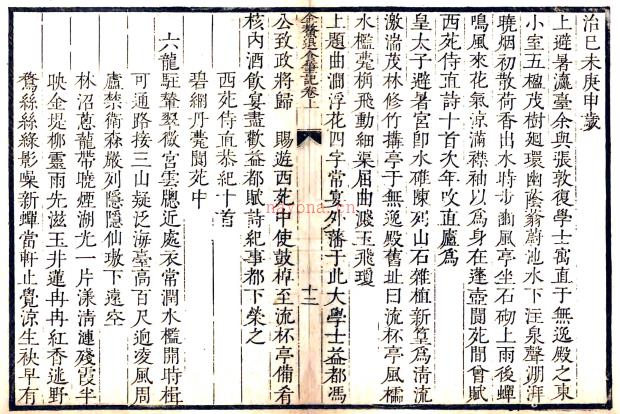 治已未庚申歲
上避暑瀛臺余與張敦復學士寓直于無逸殿之東
小室五楹茂樹廻環幽陰蓊蔚池水下注泉聲㴩湃
曉烟初散荷香出水時步幽風亭坐石砌上雨後蟬
鳴風來花氣涼滿襟袖以爲身在蓬壺閬苑間曾賦
西苑侍直詩十首次年攺直廬爲
皇太子避暑宮卽水礁陳列山石雜植新篁爲清流
激湍茂林修竹搆亭于無逸殿舊址曰流杯亭風櫺
水檻蕉桷飛動細渠屈曲濺玉飛瓊
上題曲澗浮花四字常宴外藩于此大學士益都馮
公致政將歸 賜遊西苑中使鼓棹至流杯亭備肴
核内酒飲宴盡歡益都賦詩紀事都下榮之
西苑侍直恭紀十首
碧網丹甍閬苑中
金鰲退食筆記卷上
十二
六龍駐蹕翠微宮雲牕近處衣常潤水檻開時楫
可通路接三山疑泛海臺高百尺逈凌風周
廬禁衛森嚴列隱隱仙璈下遠空
林沼蔥蘢帶曉煙湖光一片漾清漣殘霞半
映金堤柳靈雨先滋玉井蓮冉冉紅香迷野
鶩絲絲綠影噪新蟬當軒止覺涼生袂早有